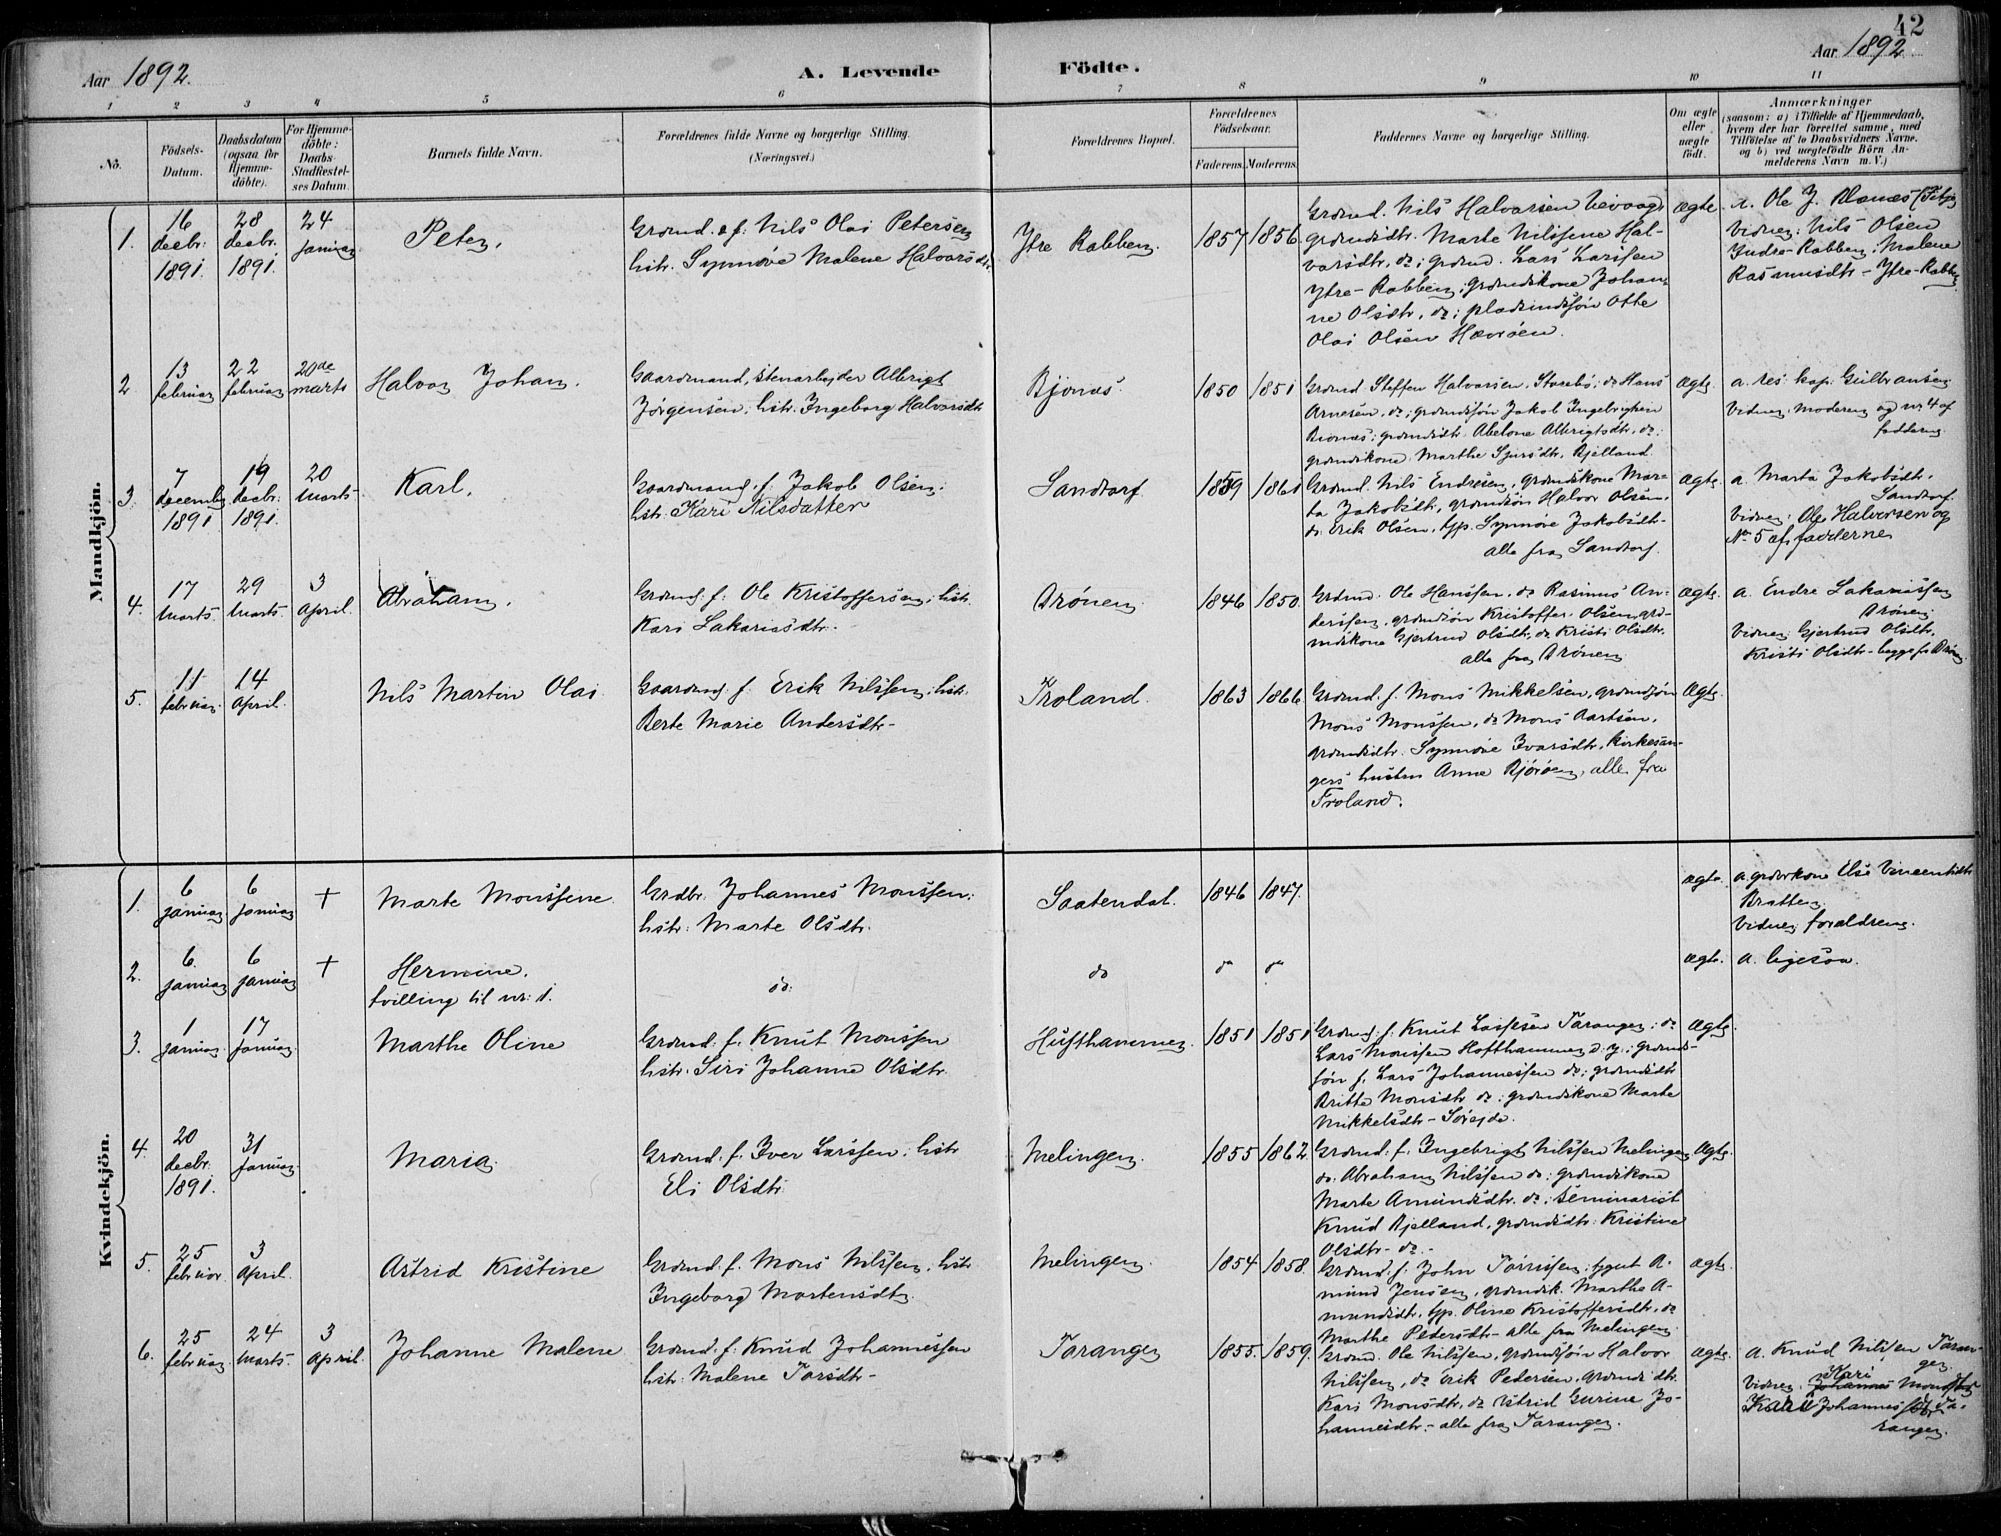 42
Aar 1892.
A. Levende
Födte.
Aar 1892
1
2
3
4
5
6
7
8
9
10
11
No.
Födsels-
Datum.
Daabsdatum
(ogsaa for
Hjemme-
döbte).
For Hjemme-
döbte:
Daabs-
Stadfæstel-
ses Datum.
Barnets fulde Navn.
Forældrenes fulde Navne og borgerlige Stilling.
(Næringsvei.)
Forældrenes Bopæl.
Forældrenes
Födselsaar.
Faderens.
Moderens.
Faddernes Navne og borgerlige Stilling.
Om ægte
eller
uægte
födt.
Anmærkninger
(saasom: a) i Tilfælde af Hjemmedaab,
hvem der har forrettet samme, med
Tilföielse af to Daabsvidners Navne,
og b) ved uægtefödte Börn An-
melderens Navn m. V.)
Mandkjön.
1.
16
decbr:
1891.
28
decbr.
1891.
24
januar
Peter.
Grdmd. af: Nils Olai Petersen
hstr. Synnöve Malene Halvorsdtr.
Ytre Rabben.
1857
1856.
Grdmd. Nils Halvorsen
grdmdsdtr. Marte Nilssene Hal-
vorsdtr, do; grdmd. Lars Larssen
Ytre-Rabben; grdmdskone Johan-
ne Olsdtr, do; pladsmdssön Otte
Olai Olsen Hævröen.
ægte
a. Ole J.
Vidner: Nils Olsen
Indre-Rabben, Malene
Rasmusdtr - Ytre-Rabben
2
13
februar
22
februar
20de
marts
Halvor Johan.
Gaardmand, stenarbejder Albrigt
Jörgensen, hstr. Ingeborg Halvorsdtr
Bjönæs.
1850
1851
Grdmd Steffen Halvorsen, Storebö; do Hans
Arnesen, do; grdmdssön Jakob Ingebrigtsen
grdmdsdtr. Abelone Albrigtsdtr, do:
grdmdskone Marthe Sjursdtr. Bjelland.
ægte.
a. res: kap: Gulbransen
Vidner: Moderen og nr 4 af
fadderne
3.
7
decemb
1891
19
decbr.
1891.
20
Marts
Karl.
Gaardmand f: Jakob Olsen:
hstr: Kari Nilsdatter
Sandtorf
1859
1861
Grdmd. Nils Endresen, grdmdskone Mar-
ta Jakobsdtr, grdmdssön Halvor Olsen,
do. Erik Olsen, tjp. Synnöve Jakobsdtr-
alle fra Sandtorf.
ægte.
a. Marta Jakobsdtr.
Sandtorf.
Vidner: Ole Halvorsen og
No 5 af fadderne
4.
17
Marts.
29
Marts.
3
April.
Abraham.
Grdmd: f: Ole Kristoffersen; hstr.
Kari Sakariasdtr.
Drönen.
1846
1850.
Grdmd. Ole Hanssen, do Rasmus An-
derssen, grdmdssön Kristoffer Olsen, grd-
mdskone Gjertrud Olsdtr, do Kristi Olsdtr.
alle fra Drönen
ægte.
a. Endre Sakariassen
Drönen:
Vidner: Gjertrud Olsdtr,
Kristi Olsdtr - begge fr Drönen
5.
11
februar.
14
April.
Nils Martin Olai
Gaardmd: f. Erik Nilssen; hstr.
Berte Marie Andersdtr-
Froland.
1863
1866.
Grdmd. f. Mons Mikkelsen, grdmdssön
Mons Monssen, do Mons Aartsen,
grdmdsdtr. Synnöve Ivarsdtr, kirkesan-
gers hustru Anna Björöen, alle fra
Froland.
Ægte.
Kvindekjön.
1.
6
januar
6
januar
+
Marte Monssene
Grdbr. Johannes Monssen;
hstr: Marte Olsdtr.
Saatendal.
1846
1847.
ægte.
a. grdbrkone Else Vincentsdtr
Bratten
Vidner: forældrene.
2.
6.
januar
6
januar
+
Hermine.
tvilling til nr: 1.
do:
do
do
do
ægte.
a. ligesaa.
3.
1
januar.
17
januar.
Marthe Oline
Grdmd: f. Knut Monssen
hstr. Siri Johanna Olsdtr.
Hufthammer.
1851
1851
Grdmd: f. Knut Larssen Taranger; do
Lars Monssen Hofthammer d.y.; grdmds-
sön f. Lars Johannessen do; grdmdsdtr
Britte Monsdtr do: grdmdskone Marte
Mikkelsdtr - Söreide.
Ægte.
4.
20
decbr.
1891.
31
januar.
Maria.
Grdmd: f. Iver Larssen; hstr
Eli Olsdtr.
Melingen.
1855
1862.
Grdmd: f. Ingebrigt Nilssen Melingen
do. Abraham Nilssen do: grdmdskone
Marte Amundsdtr. do; seminarist
Knud Bjelland, grdmdsdtr: Kristine
Olsdtr - do -
Ægte.
5.
25
februar
3
April.
Astrid Kristine
Grdmd. f. Mons Nilssen; hstr
Ingeborg Mortensdtr.
Melingen.
1854.
1858.
Grdmd. f. John Törrissen; tjgut A-
mund Jensen, grdmdsk. Marthe A-
mundsdtr. tjp. Oline Kristoffersdtr, do
Marthe Pedersdtr - alle fra Melingen.
ægte.
6.
25
februar
24
Marts.
3
April.
Johanne Malene
Grdmd: f: Knud Johannessen
hstr: Malene Torsdtr-
Taranger
1855.
1859.
Grdmd. Ole Nilssen, grdmdssön Halvor
Nilssen, do Erik Pedersen, grdmdsdtr
Kari Monsdtr, do Astrid Gurine Jo-
hannesdtr - alle fra Taranger.
ægte.
a. Knud Nilssen Taran-
ger.
Vidner: Kari
Johannes
Johannes Ta-
ranger.